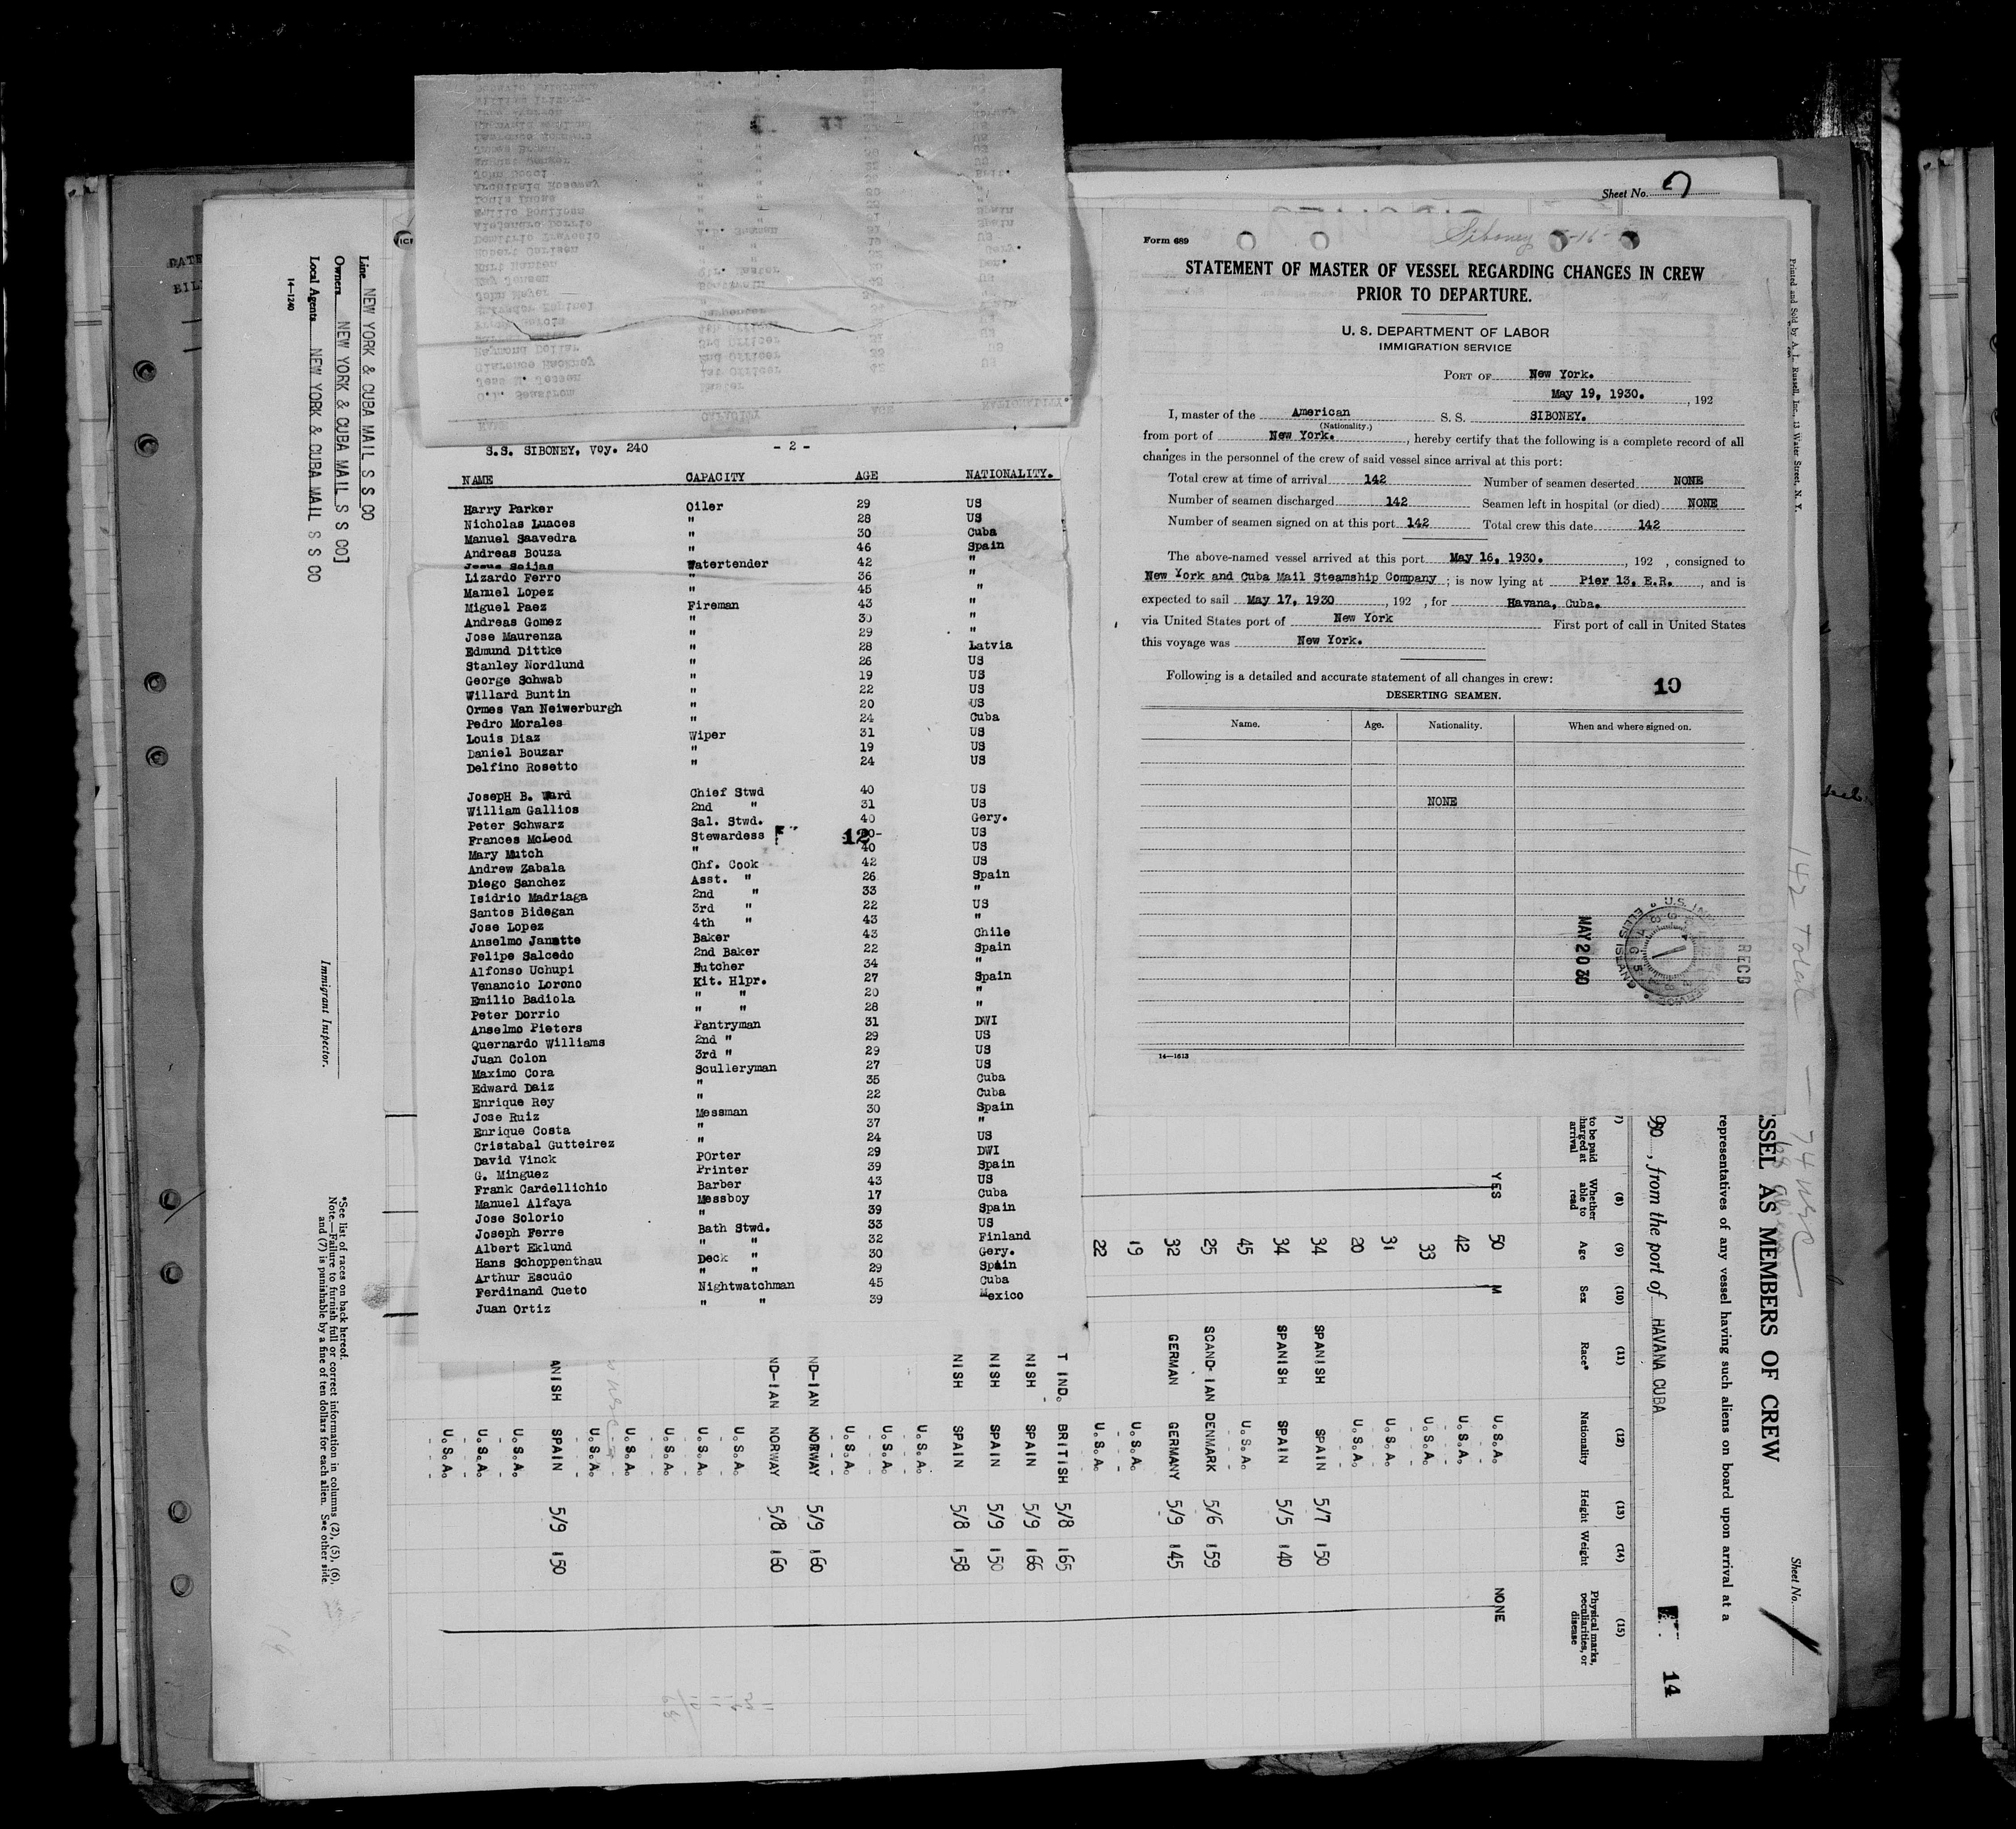 S.S. SIBONEY, Voy. 240 - 2 -
NAME CAPACITY AGE NATIONALITY.
Harry Parker Oiler 29 US
Nicholas Luaces " 28 US
Manuel Saavedra " 30 Cuba
Andreas Bouza " 46 Spain
Jesus Seijas Watertender 42 "
Lizardo Ferro " 36 "
Manuel Lopez " 45 "
Miguel Paez Fireman 43 "
Andreas Gomez " 30 "
Jose Maurenza " 29 "
Edmund Dittke " 28 Latvia
Stanley Nordlund " 26 US
George Schwab " 19 US
Willard Buntin " 22 US
Ormes Van Neiwerburgh " 20 US
Pedro Morales " 24 Cuba
Louis Diaz Wiper 31 US
Daniel Bouzar " 19 US
Delfino Rosetto " 24 US
JosepH B. Ward Chief Stwd 40 US
William Gallios 2nd " 31 US
Peter Schwarz Sal. Stwd. 40 Gery.
Frances McLeod Stewardess 12 US
Mary Mutch " 40 US
Andrew Zabala Chf. Cook 42 US
Diego Sanchez Asst. " 26 Spain
Isidrio Madriaga 2nd " 33 "
Santos Bidegan 3rd " 22 US
Jose Lopez 4th " 43 "
Anselmo Janatte Baker 43 Chile
Felipe Salcedo 2nd Baker 22 Spain
Alfonso Uchupi Butcher 34 "
Venancio Lorono Kit. Hlpr. 27 Spain
Emilio Badiola " " 20 "
Peter Dorrio " " 28 "
Anselmo Pieters Pantryman 31 DWI
Quernardo Williams 2nd " 29 US
Juan Colon 3rd " 29 US
Maximo Cora Sculleryman 27 US
Edward Daiz " 35 Cuba
Enrique Rey " 22 Cuba
Jose Ruiz Messman 30 Spain
Enrique Costa " 37 "
Cristabal Gutteirez " 24 US
David Vinck POrter 29 DWI
G. Minguez Printer 39 Spain
Frank Cardellichio Barber 43 US
Manuel Alfaya Messboy 17 Cuba
Jose Solorio " 39 Spain
Joseph Ferre Bath Stwd. 33 US
Albert Eklund " " 32 Finland
Hans Schoppenthau Deck " 30 Gery.
Arthur Escudo " " 29 Spain
Ferdinand Cueto Nightwatchman 45 Cuba
Juan Ortiz " " 39 Mexico
Sheet No.
Form 689
Siboney
STATEMENT OF MASTER OF VESSEL REGARDING CHANGES IN CREW
PRIOR TO DEPARTURE.
U. S. DEPARTMENT OF LABOR
IMMIGRATION SERVICE
PORT OF New York.
May 19, 1930. , 192
I, master of the American S. S. SIBONEY.
(Nationality.)
from port of New York. , hereby certify that the following is a complete record of all
changes in the personnel of the crew of said vessel since arrival at this port:
Total crew at time of arrival 142 Number of seamen deserted NONE
Number of seamen discharged 142 Seamen left in hospital (or died) NONE
Number of seamen signed on at this port 142 Total crew this date 142
The above-named vessel arrived at this port May 16, 1930. , 192 , consigned to
New York and Cuba Mail Steamship Company ; is now lying at Pier 13. E.R. , and is
expected to sail May 17, 1930 , 192 , for Havana, Cuba.
via United States port of New York First port of call in United States
this voyage was New York.
Following is a detailed and accurate statement of all changes in crew:
10
DESERTING SEAMEN.
Name. Age. Nationality. When and where signed on.
NONE
MAY 20 30
RECD
14—1613
Printed and Sold by A. L. Russell, Inc., 13 Water Street, N. Y.
142 Total — 74 USC
SSEL AS MEMBERS OF CREW
Sheet No.
representatives of any vessel having such aliens on board upon arrival at a
30 , from the port of HAVANA CUBA
14
(8) Whether able to read
(9) Age
(10) Sex
(11) Race*
(12) Nationality
(13) Height
(14) Weight
(15) Physical marks, peculiarities, or disease
YES 50 M U.S.A. NONE
42 U.S.A.
33 U.S.A.
31 U.S.A.
20 U.S.A.
34 SPANISH SPAIN 5/7 150
34 SPANISH SPAIN 5/5 140
45 U.S.A.
25 SCAND-IAN DENMARK 5/6 159
32 GERMAN GERMANY 5/9 145
19 U.S.A.
22 U.S.A.
T IND. BRITISH 5/8 165
NISH SPAIN 5/9 166
NISH SPAIN 5/9 150
NISH SPAIN 5/8 158
U.S.A.
U.S.A.
U.S.A.
ND-IAN NORWAY 5/9 160
ND-IAN NORWAY 5/8 160
U.S.A.
U.S.A.
U.S.A.
U.S.A.
U.S.A.
ANISH SPAIN 5/9 150
U.S.A.
U.S.A.
U.S.A.
Line NEW YORK & CUBA MAIL S S CO
Owners NEW YORK & CUBA MAIL S S CO]
Local Agents NEW YORK & CUBA MAIL S S CO
14—1240
Immigrant Inspector.
*See list of races on back hereof.
Note.—Failure to furnish full or correct information in columns (2), (5), (6),
and (7) is punishable by a fine of ten dollars for each alien. See other side.